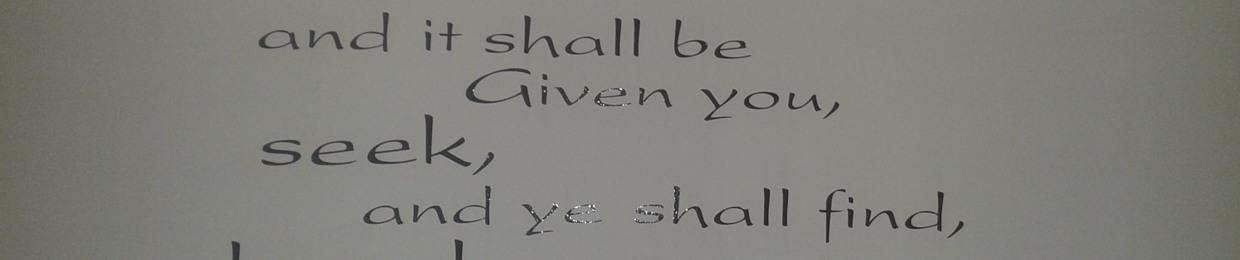 and it shall be
Given you,
seek,
and ye shall find,